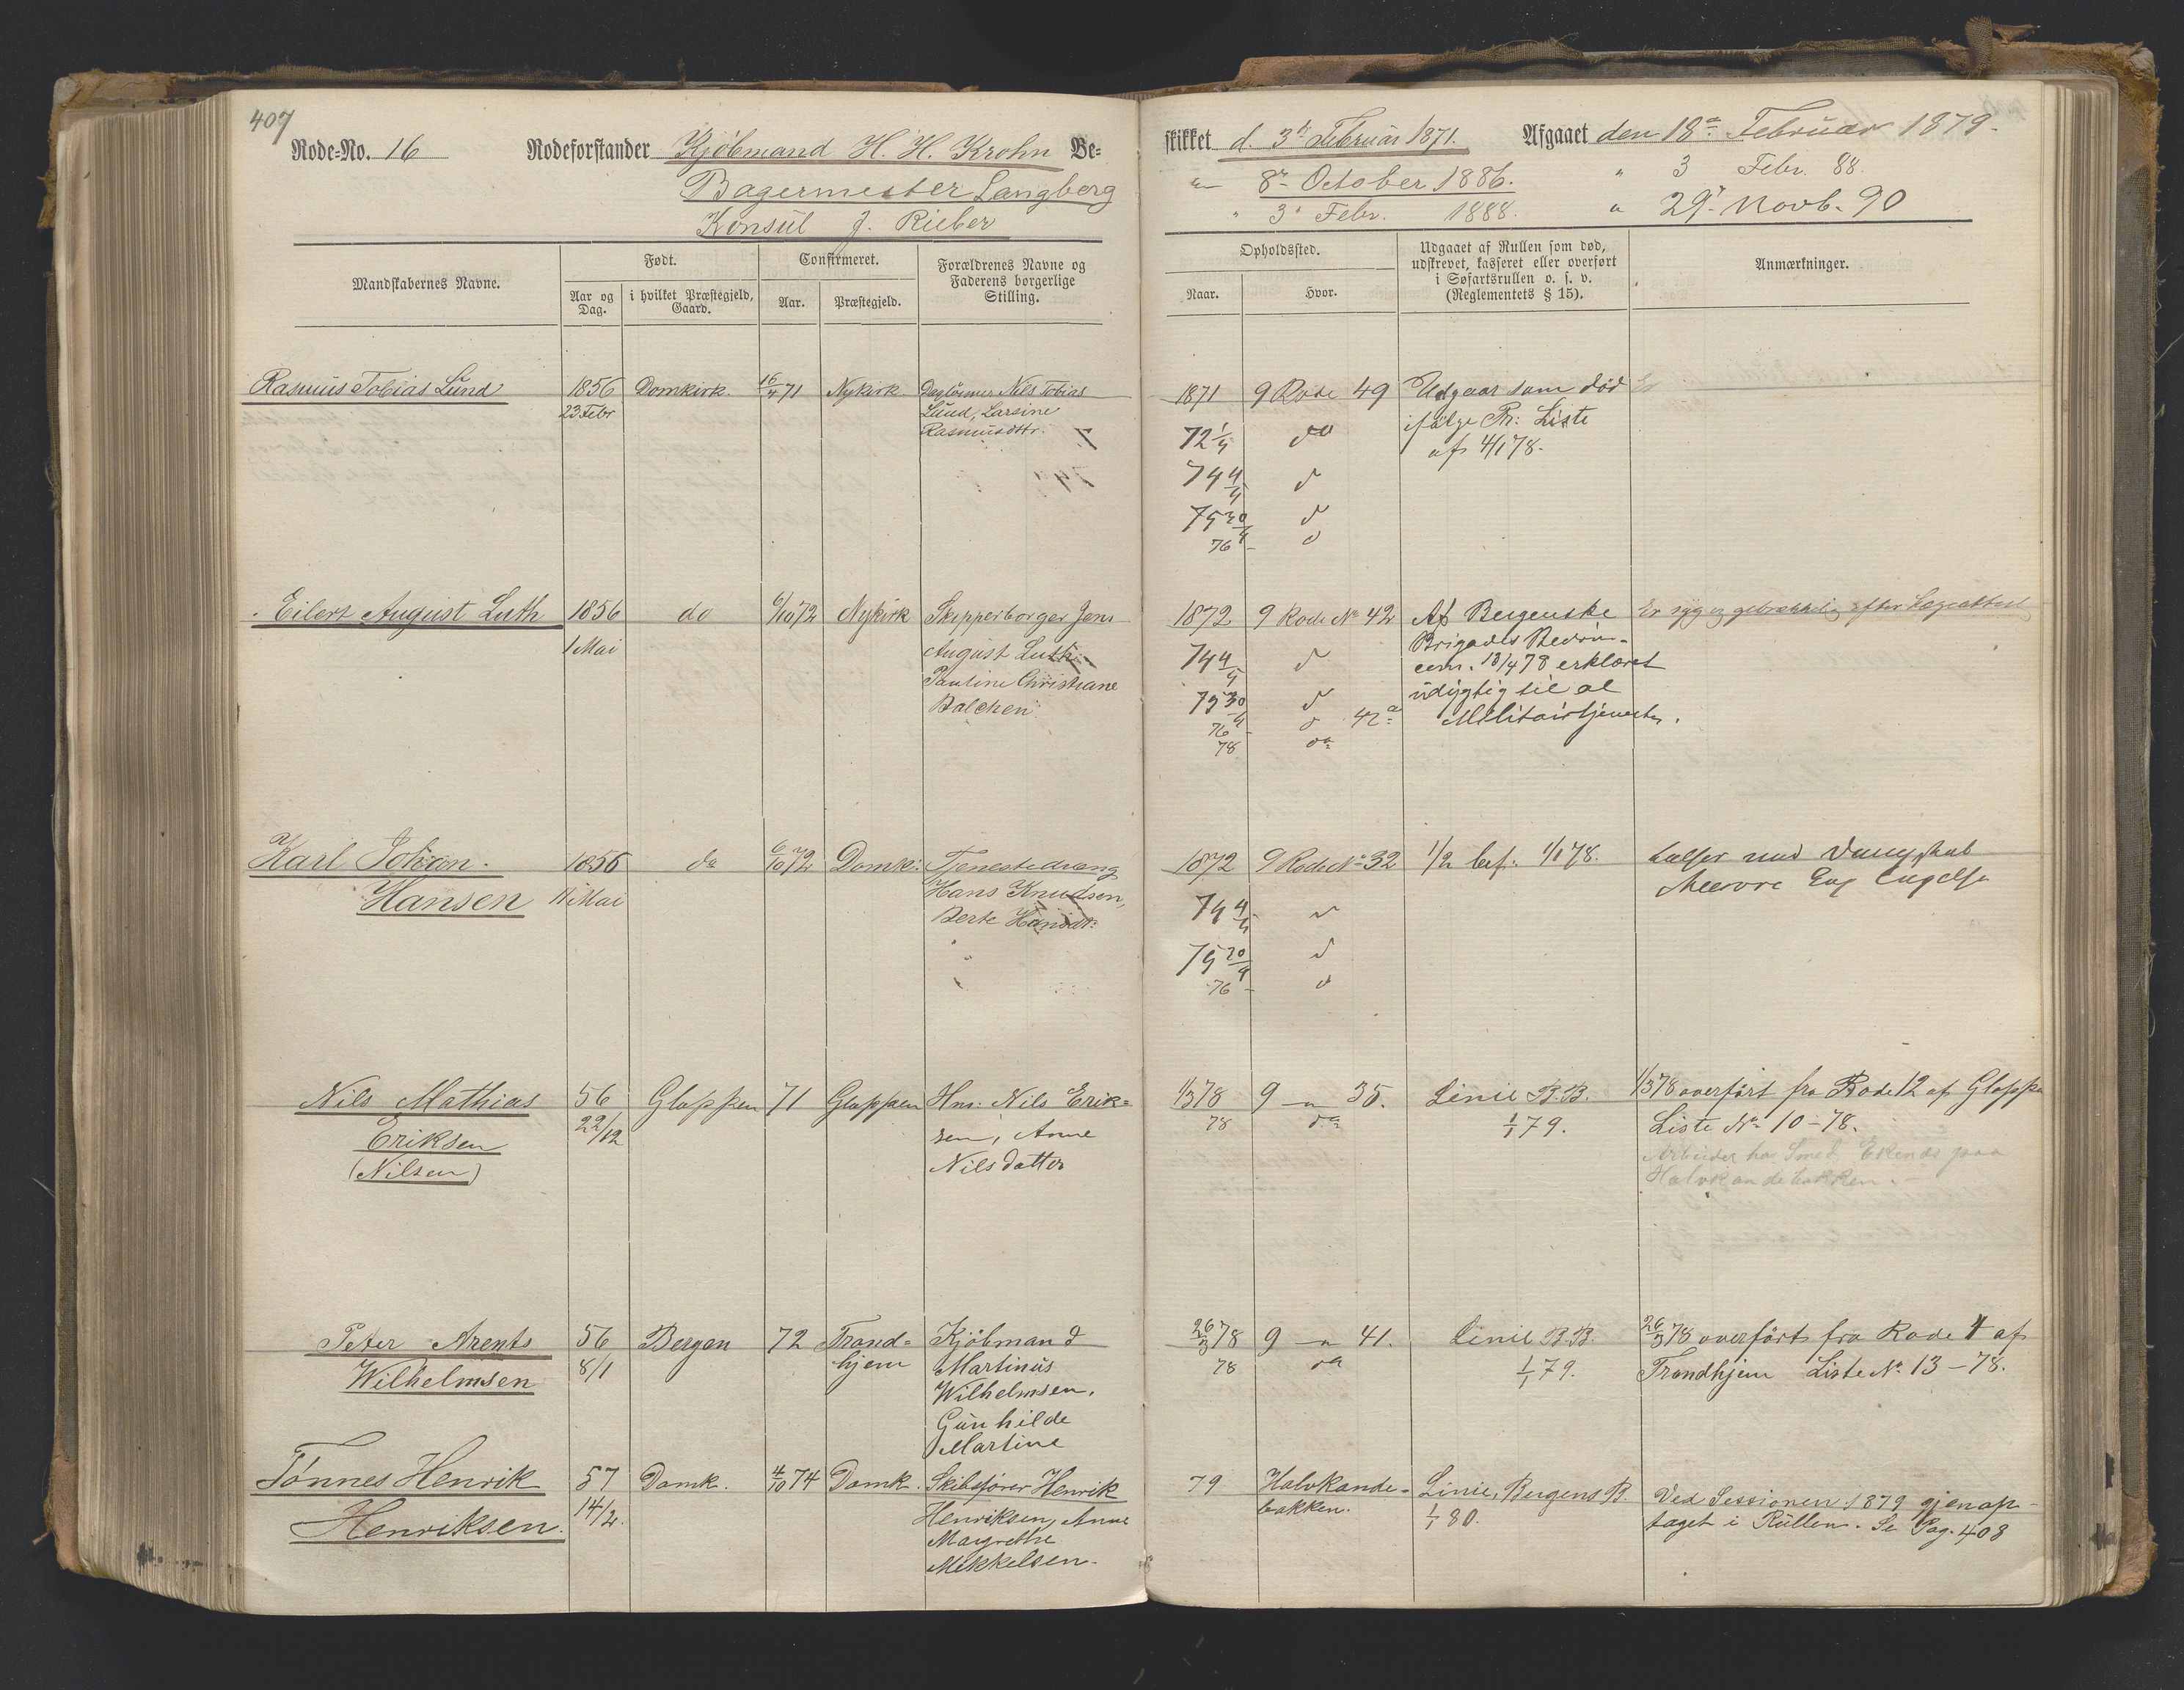 407
Rode-No. 16 Rodeforstander Kjöbmand H. H. Krohn Be-
Bagermester Langberg
Konsul J. Rieber
skikket d. 3die Februar 1871. Afgaaet den 18de Februar 1879.
8de October 1886. " 3 Febr. 88.
" 3 Febr. 1888. " 29 Novb. 90
Mandskabernes Navne.
Født.
Aar og Dag.
i hvilket Præstegjeld, Gaard.
Confirmeret.
Aar.
Præstegjeld.
Forældrenes Navne og
Faderens borgerlige
Stilling.
Opholdssted.
Naar.
Hvor.
Udgaaet af Rullen som død,
udskrevet, kasseret eller overført
i Søfartsrullen o. s. v.
(Reglementets § 15).
Anmærkninger.
Rasmus Tobias Lund
1856
23 Febr
Domkirk.
16/4 71
Nykirk.
Daglønner Nils Tobias
Lund, Larsine
Rasmusdttr.
1871 9 Rode 49
72 1/4 do
74 4/4 d
75 20/4 d
76 - d
Udgaar som död
ifölge Pr: Liste
af 4/1 78.
Eilert August Luth
1856
1 Mai
do
6/10 72
Nykirk
Skipperborger Jens
August Luth
Pauline Christiane
Balchen
1872 9 Rode No 42
74 4/4 d
75 30/4 d
76 - d 42a
78 do
Af Bergenske
Brigades Bedöm-
com. 13/4 78 erklæret
udygtig til al
Militairtjeneste.
Er syg og gebrækkelig efter Lægeattest
Karl Johan
Hansen
1856
11 Mai
do
6/10 72
Domk:
Tjenestedreng
Hans Knudsen,
Berte Hansdt:
1872 9 Rode No 32
74 4/4 d
75 20/4 d
76 - d
1/2 bef: 1/1 78.
Nils Mathias
Eriksen
(Nilsen)
56
22/12
Gloppen
71
Gloppen
Hm: Nils Erik-
sen, Anne
Nilsdatter
1/3 78 9 " 35.
78 do
Linie B.B.
1/1 79.
1/3 78 overført fra Rode 12 af Gloppe
Liste No 10-78.
Arbeider hos Smed Ekenæs paa
Halvkandebakken.
Peter Arents
Wilhelmsen
56
8/1
Bergen
72
Trond-
hjem
Kjöbmand
Martinus
Wilhelmsen,
Gunhilde
Martine
26/3 78 9 " 41.
78 do
Linie B.B.
1/1 79.
26/3 78 overfört fra Rode 4 af
Trondhjem Liste No 13-78.
Tönnes Henrik
Henriksen.
57
14/2.
Domk.
4/10 74
Domk.
Skibsfører Henrik
Henriksen, Anne
Margrethe
Mikkelsen.
79 Halvkande-
bakken.
Linie, Bergens B.
1/1 80.
Ved Sessionen 1879 gjenop-
taget i Rullen. Se Pag. 408